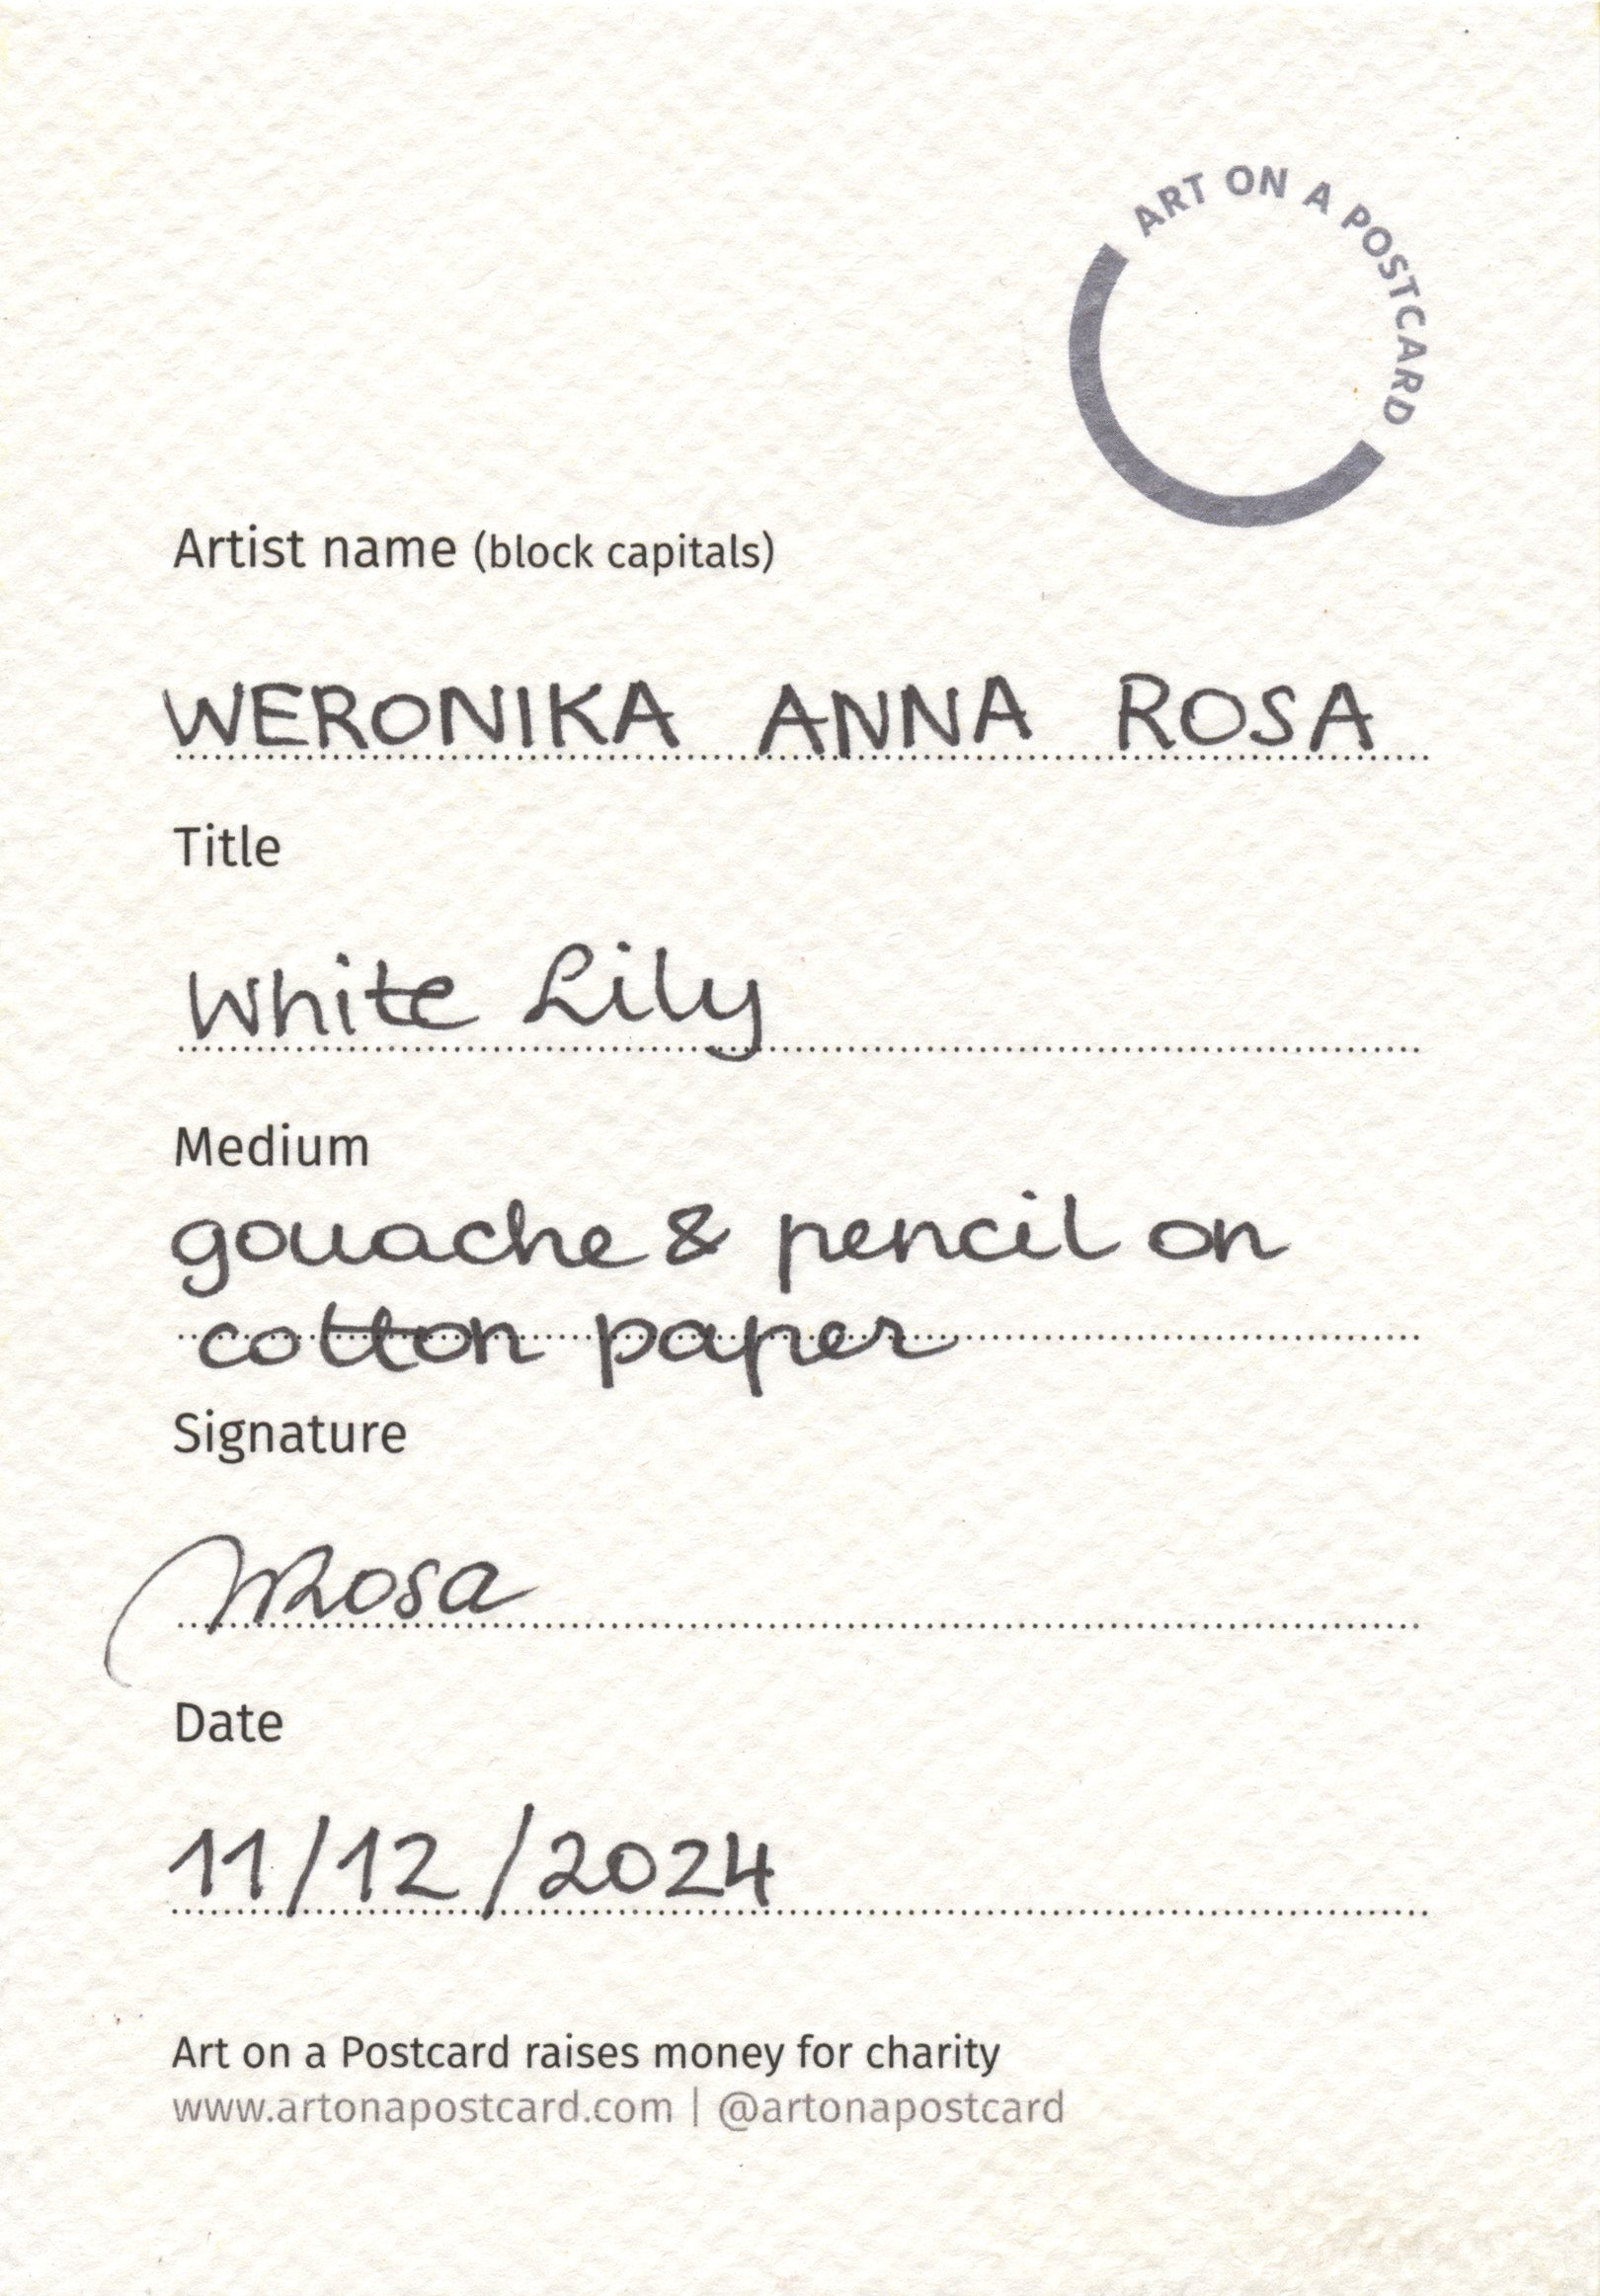 ART ON A POSTCARD
Artist name (block capitals)
WERONIKA ANNA ROSA
Title
White Lily
Medium
gouache & pencil on
cotton paper
Signature
WRosa
Date
11/12/2024
Art on a Postcard raises money for charity
www.artonapostcard.com | @artonapostcard